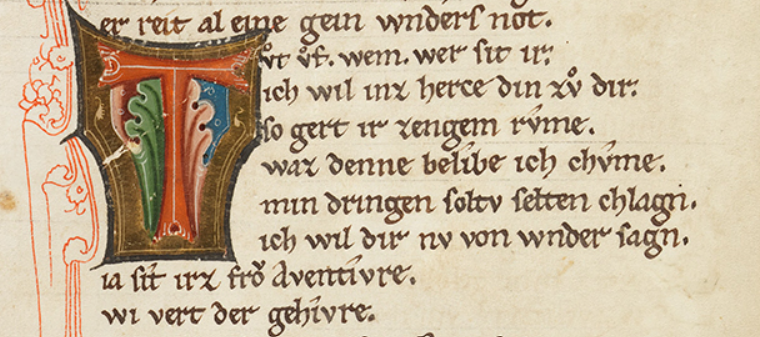 er reit al eine gein wnders not.
Tvͦt vͦf. wem. wer sit ir;
ich wil inz herce din zvͦ dir;
so gert ir zengem rvͥme.
waz denne belibe ich chvͥme.
min dringen soltv selten chlagn.
ich wil dir nv von wnder sagn.
ia sit irz froͮ Aventivre.
wi vert der gehivre.